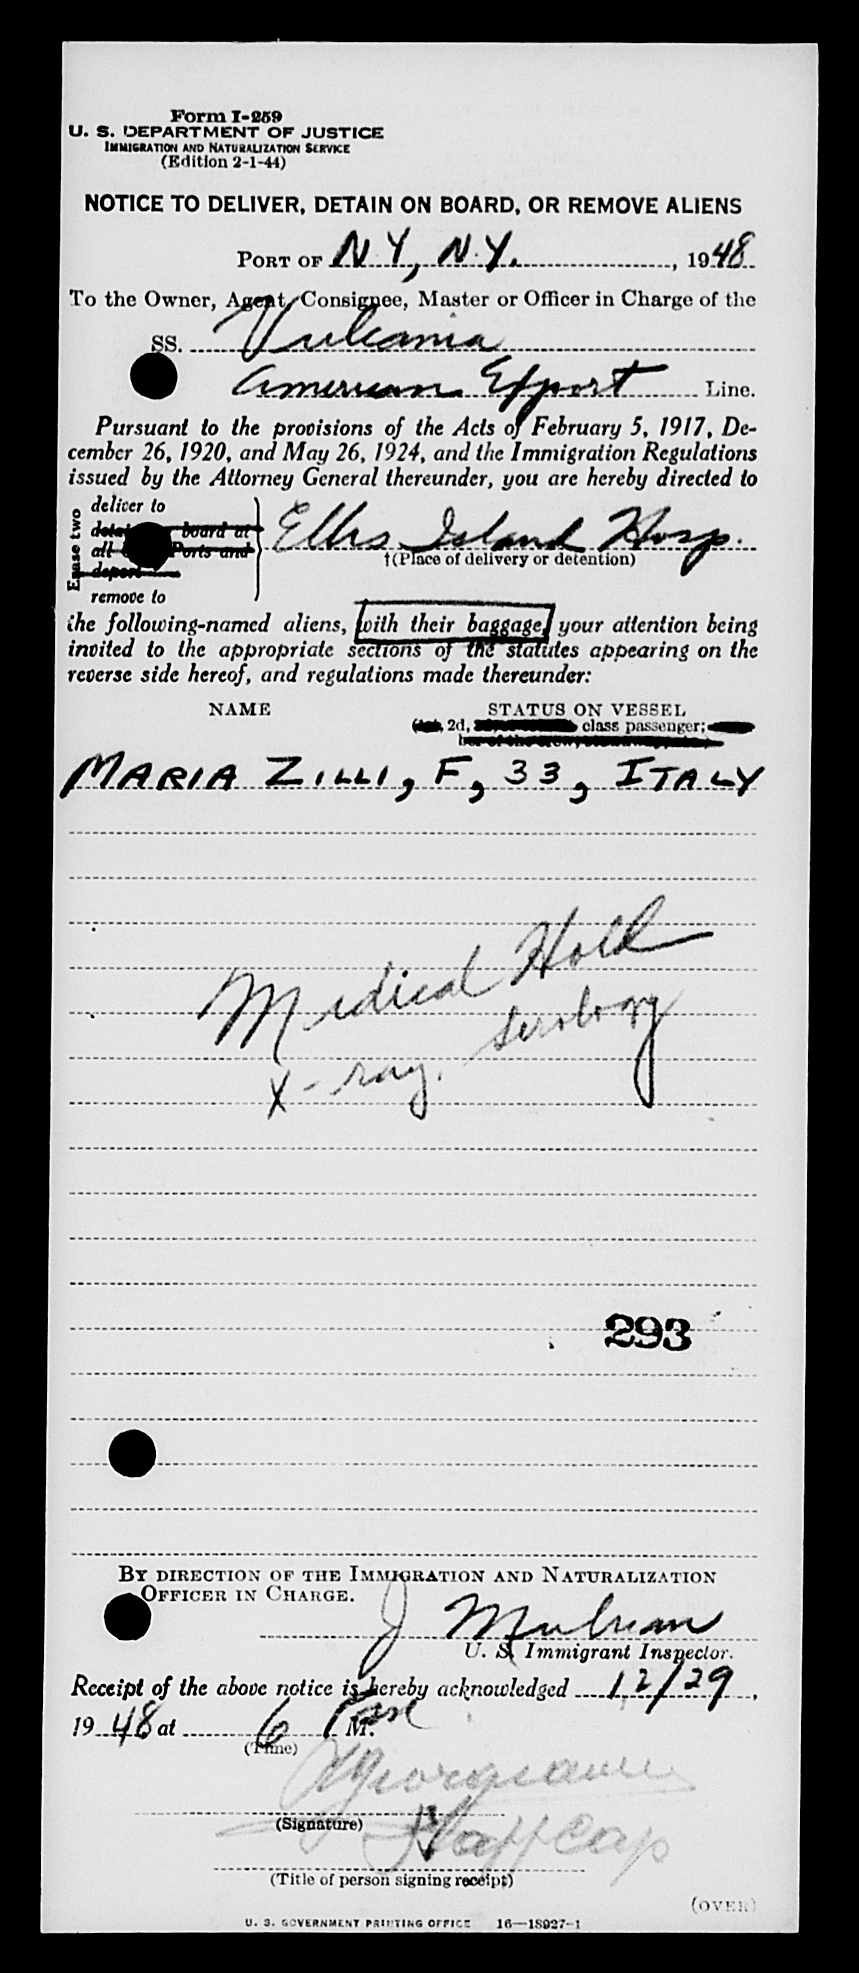 Form I-259
U. S. DEPARTMENT OF JUSTICE
IMMIGRATION AND NATURALIZATION SERVICE
(Edition 2-1-44)
NOTICE TO DELIVER, DETAIN ON BOARD, OR REMOVE ALIENS
PORT OF N.Y., N.Y., 1948
To the Owner, Agent, Consignee, Master or Officer in Charge of the
SS. Vulcania
American Export Line.
Pursuant to the provisions of the Acts of February 5, 1917, De-
cember 26, 1920, and May 26, 1924, and the Immigration Regulations
issued by the Attorney General thereunder, you are hereby directed to
Erase two
deliver to
board at
all Ports and
deport
remove to
Ellis Island Hosp.
†(Place of delivery or detention)
the following-named aliens, with their baggage, your attention being
invited to the appropriate sections of the statutes appearing on the
reverse side hereof, and regulations made thereunder:
NAME STATUS ON VESSEL
2d, class passenger;
MARIA ZILLI, F, 33, ITALY
Medical Hold
x-ray. Serology
293
BY DIRECTION OF THE IMMIGRATION AND NATURALIZATION
OFFICER IN CHARGE.
U. S. Immigrant Inspector.
Receipt of the above notice is hereby acknowledged 12/29,
1948 at 6 P M.
(Time)
(Signature)
Staff Cap
(Title of person signing receipt)
(OVER)
U. S. GOVERNMENT PRINTING OFFICE 16—18927-1